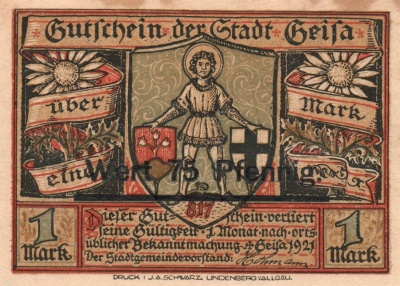 Gutschein der Stadt Geisa
über Mark
eine
Wert 75 Pfennig
817
1 Mark
Dieser Gutschein verliert
seine Gültigkeit 1 Monat nach orts
üblicher Bekanntmachung Geisa 1921
Der Stadtgemeindevorstand:
1 Mark
DRUCK: J.A. SCHWARZ, LINDENBERG ALLGÄU.